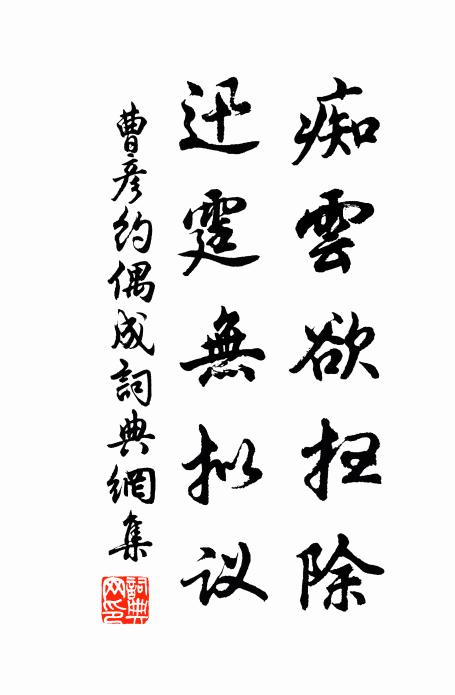 痴雲欲扫除
迅霆無拟议
曹彦约偶成詞典網集
詞典網印